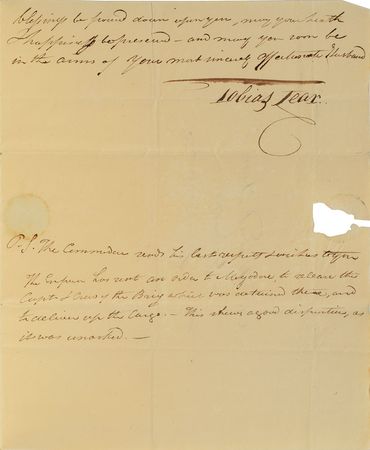 blessings be poured down upon you, may your health
& happiness be preserved – and may you soon be
in the arms of Your most sincerely affectionate Husband
Tobias Lear.
P.S. The Commodore sends his best respects & wishes to you
The Emperor has sent an order to Mogadore to release the
Captn & Crew of the Brig which was detained there, and
to deliver up the Cargo. – This shews a good disposition, as
it was unasked. –